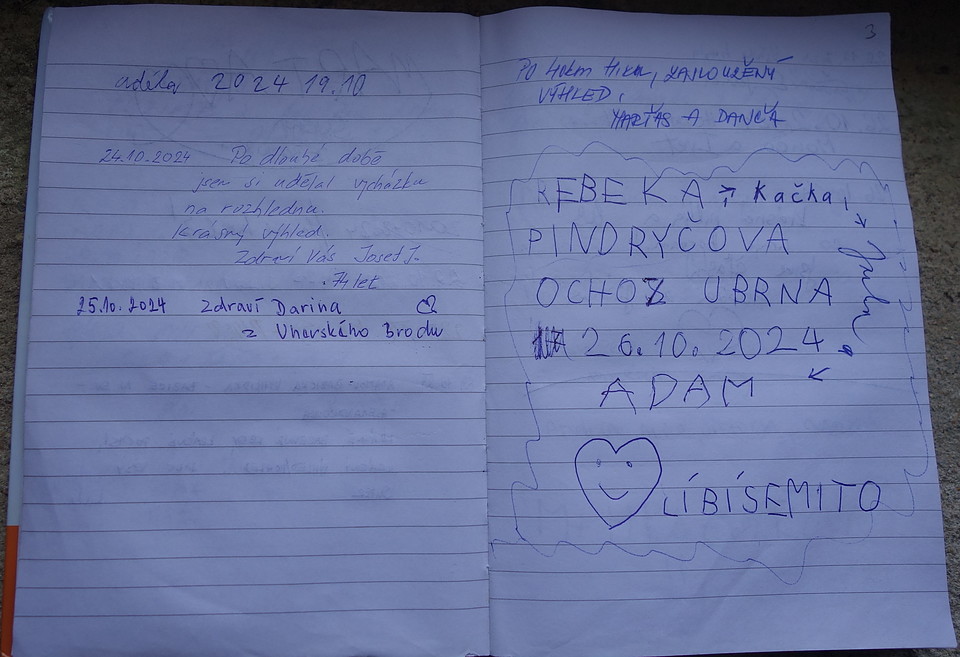 adéla 2024 19.10
24.10.2024 Po dlouhé době
jsem si udělal vycházku
na rozhlednu.
Krásný výhled.
Zdraví Vás Josef J.
74 let
25.10.2024 Zdraví Darina
z Uherského Brodu
3
Po
VÝHLED,
MARŤAS A DANČA
REBEKA → Kačka,
→ Jula
PINDRYČOVA
OCHOZ UBRNA
26.10.2024
ADAM
LÍBÍSEMITO